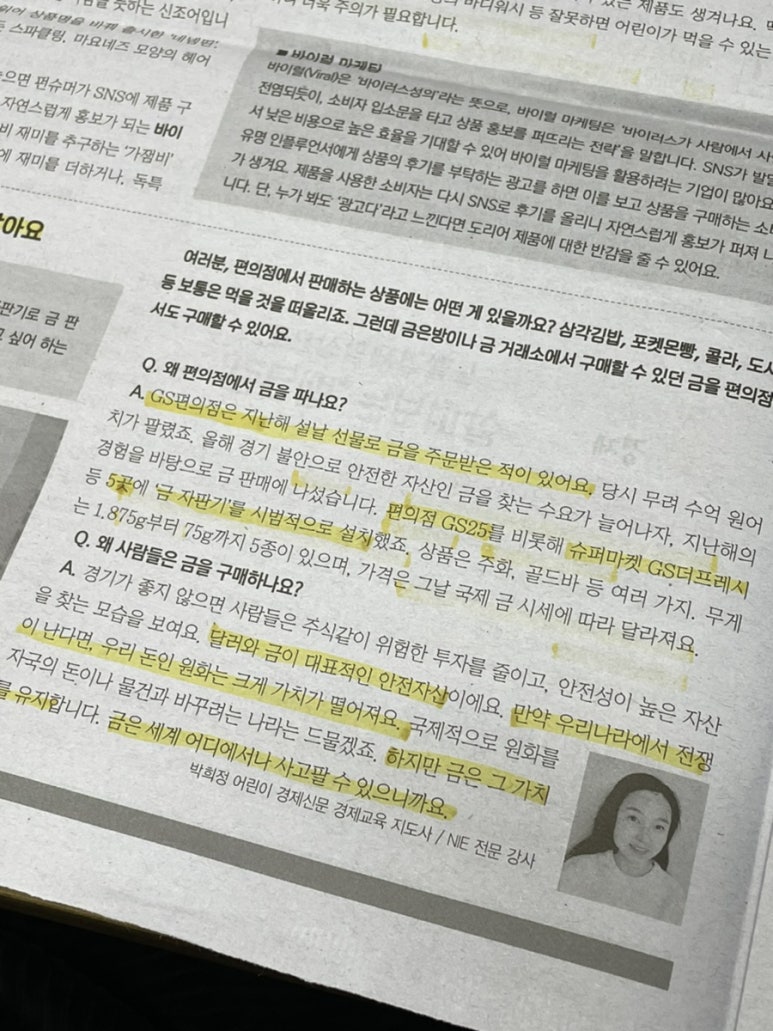 뜻하는 신조어입니
스파클링. 마요네즈 모양의 헤어
으면 펀슈머가 SNS에 제품 구
자연스럽게 홍보가 되는 바이
비 재미를 추구하는 '가잼비'
에 재미를 더하거나, 독특
주의가 필요합니다.
바디워시 등 잘못하면 어린이가 먹을 수 있는
제품도 생겨나요.
■ 바이럴 마케팅
바이럴(Viral)은 '바이러스성의'라는 뜻으로, 바이럴 마케팅은 '바이러스가 사람에서 사
전염되듯이, 소비자 입소문을 타고 상품 홍보를 퍼뜨리는 전략'을 말합니다. SNS가 발달
서 낮은 비용으로 높은 효율을 기대할 수 있어 바이럴 마케팅을 활용하려는 기업이 많아요
유명 인플루언서에게 상품의 후기를 부탁하는 광고를 하면 이를 보고 상품을 구매하는 소비
가 생겨요. 제품을 사용한 소비자는 다시 SNS로 후기를 올리니 자연스럽게 홍보가 퍼져 나
니다. 단, 누가 봐도 '광고다'라고 느낀다면 도리어 제품에 대한 반감을 줄 수 있어요.
아요
판기로 금 판
싶어 하는
여러분, 편의점에서 판매하는 상품에는 어떤 게 있을까요? 삼각김밥, 포켓몬빵, 콜라, 도시
등 보통은 먹을 것을 떠올리죠. 그런데 금은방이나 금 거래소에서 구매할 수 있던 금을 편의점
서도 구매할 수 있어요.
Q. 왜 편의점에서 금을 파나요?
A. GS편의점은 지난해 설날 선물로 금을 주문받은 적이 있어요. 당시 무려 수억 원어
치가 팔렸죠. 올해 경기 불안으로 안전한 자산인 금을 찾는 수요가 늘어나자, 지난해의
경험을 바탕으로 금 판매에 나섰습니다. 편의점 GS25를 비롯해 슈퍼마켓 GS더프레시
등 5곳에 '금 자판기'를 시범적으로 설치했죠. 상품은 주화, 골드바 등 여러 가지. 무게
는 1.875g부터 75g까지 5종이 있으며, 가격은 그날 국제 금 시세에 따라 달라져요.
Q. 왜 사람들은 금을 구매하나요?
A. 경기가 좋지 않으면 사람들은 주식같이 위험한 투자를 줄이고, 안전성이 높은 자산
을 찾는 모습을 보여요. 달러와 금이 대표적인 안전자산이에요. 만약 우리나라에서 전쟁
이 난다면, 우리 돈인 원화는 크게 가치가 떨어져요. 국제적으로 원화를
자국의 돈이나 물건과 바꾸려는 나라는 드물겠죠. 하지만 금은 그 가치
를 유지합니다. 금은 세계 어디에서나 사고팔 수 있으니까요.
박희정 어린이 경제신문 경제교육 지도사 / NIE 전문 강사